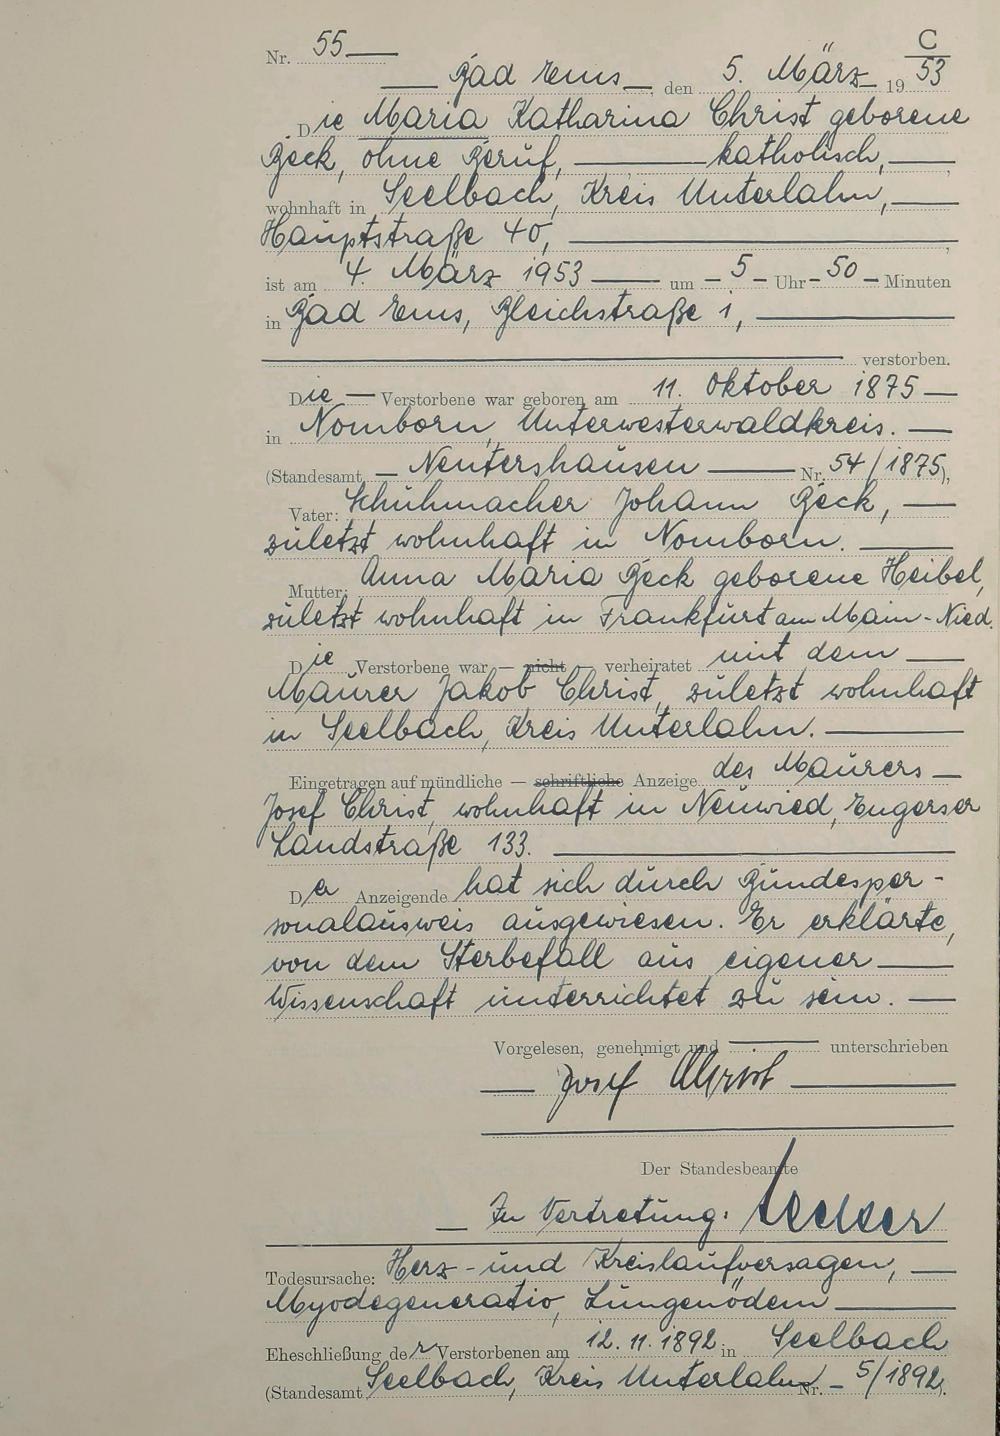 C
Nr. 55
Bad Ems, den 5. März 1953
Die Maria Katharina Christ geborene
Beck, ohne Beruf, katholisch,
wohnhaft in Seelbach, Kreis Unterlahn,
Hauptstraße 40,
ist am 4. März 1953 um 5 Uhr 50 Minuten
in Bad Ems, Bleichstraße 1,
verstorben.
Die Verstorbene war geboren am 11. Oktober 1875
in Nomborn, Unterwesterwaldkreis.
(Standesamt Nentershausen Nr. 54/1875),
Vater: Schuhmacher Johann Beck,
zuletzt wohnhaft in Nomborn.
Mutter: Anna Maria Beck geborene Heibel,
zuletzt wohnhaft in Frankfurt am Main-Nied.
Die Verstorbene war — nicht — verheiratet mit dem
Maurer Jakob Christ, zuletzt wohnhaft
in Seelbach, Kreis Unterlahn.
Eingetragen auf mündliche — schriftliche Anzeige des Maurers
Josef Christ, wohnhaft in Neuwied, Engerser
Landstraße 133.
Der Anzeigende hat sich durch Bundesper-
sonalausweis ausgewiesen. Er erklärte,
von dem Sterbefall aus eigener
Wissenschaft unterrichtet zu sein.
Vorgelesen, genehmigt und unterschrieben
Josef Christ
Der Standesbeamte
In Vertretung:
Todesursache: Herz- und Kreislaufversagen,
Myodegeneratio, Lungenödem
Eheschließung der Verstorbenen am 12.11.1892 in Seelbach
(Standesamt Seelbach, Kreis Unterlahn Nr. 5/1892).